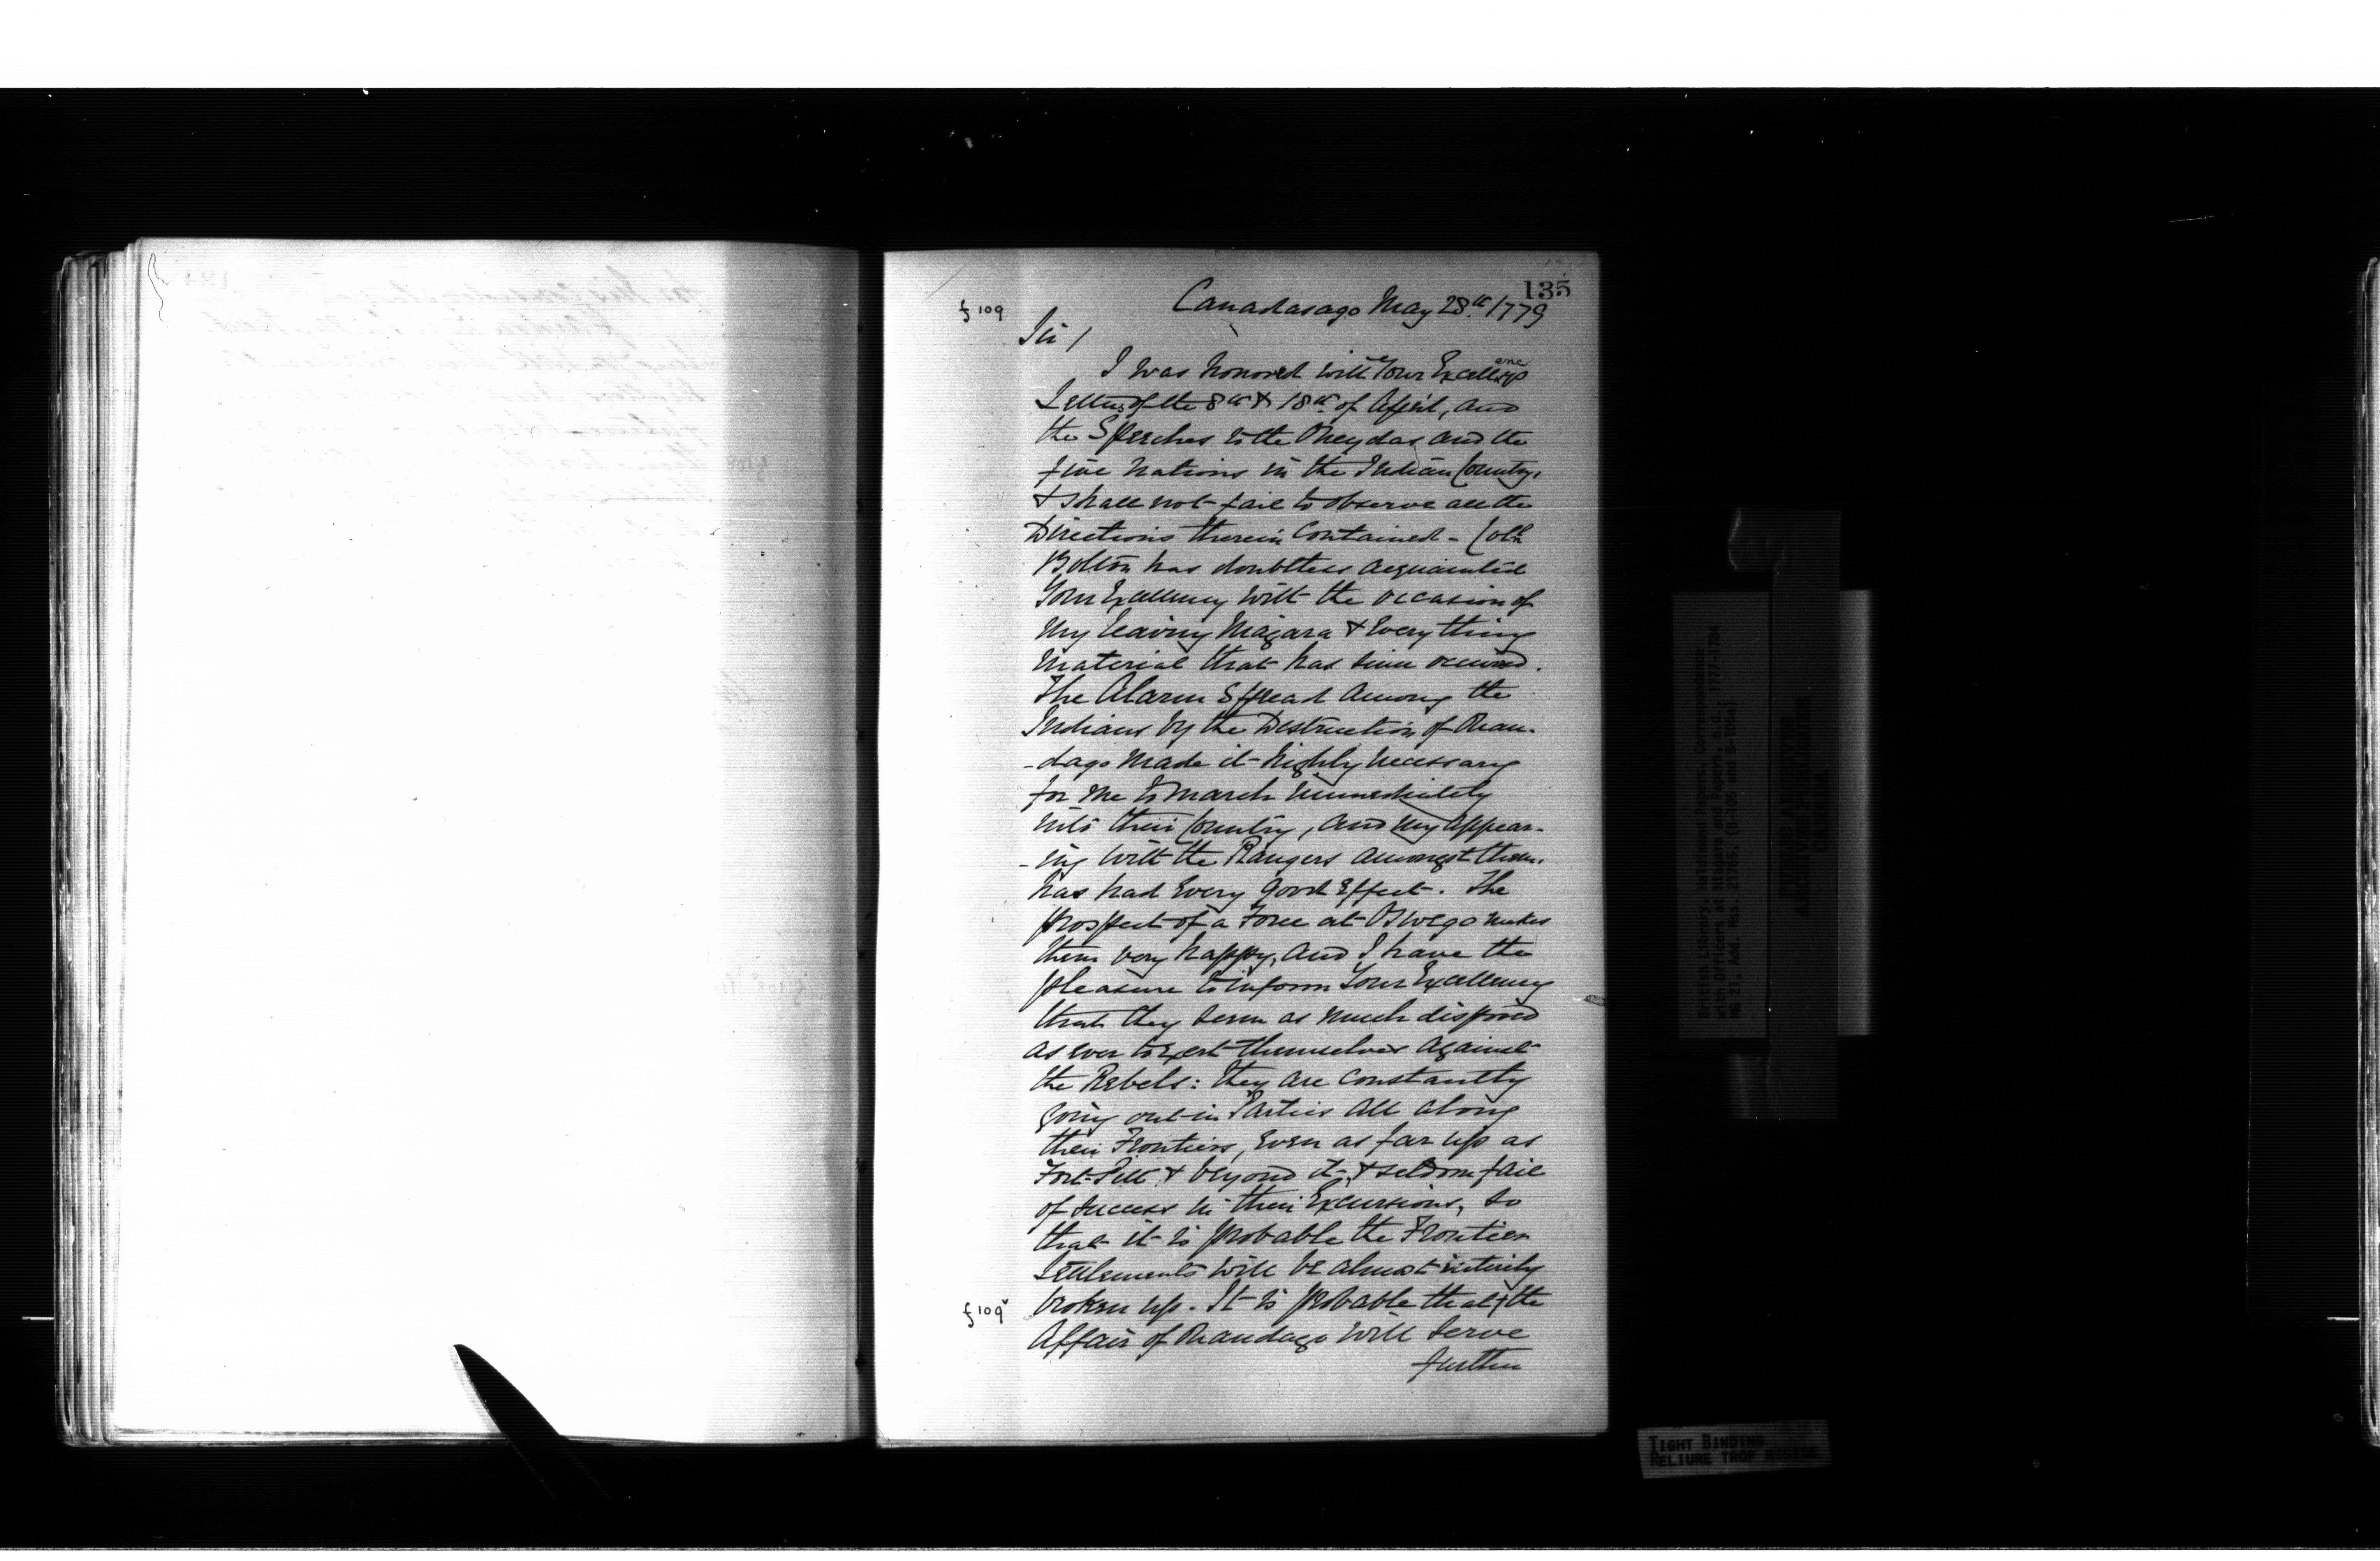 135
f 109
Canadasago May 28th 1779
Sir /
I was honored with Your Excellency's
Letters of the 8th & 18th of April, and
the Speeches to the Oneydas and the
five Nations in the Indian Country,
& shall not fail to observe all the
Directions therein Contained - Coln
Bolton has doubtless acquainted
Your Excellency with the occasion of
my leaving Niagara & Everything
Material that has since occurred.
The Alarm Spread Among the
Indians by the Destruction of Onan-
-dago made it highly necessary
for me to march immediately
into their Country, and my appear-
-ing with the Rangers amongst them.
has had Every good Effect. The
prospect of a Force at Oswego makes
them very happy, and I have the
pleasure to inform Your Excellency
that they seem as much disposed
as ever to Exert themselves against
the Rebels: they are constantly
going out in Parties all along
their Frontiers, even as far up as
Fort Pitt & beyond it, & seldom fail
of success in their Excursions, so
that it is probable the Frontier
Settlements will be almost intirely
f 109v
broken up. It is probable that the
Affair of Onandago will serve
further
British Library, Haldimand Papers, Correspondence
with Officers at Niagara and Papers, n.d., 1777-1784
MG 21, Add. Mss. 21765, (B-105 and B-105a)
PUBLIC ARCHIVES
ARCHIVES PUBLIQUES
CANADA
TIGHT BINDING
RELIURE TROP RIGIDE